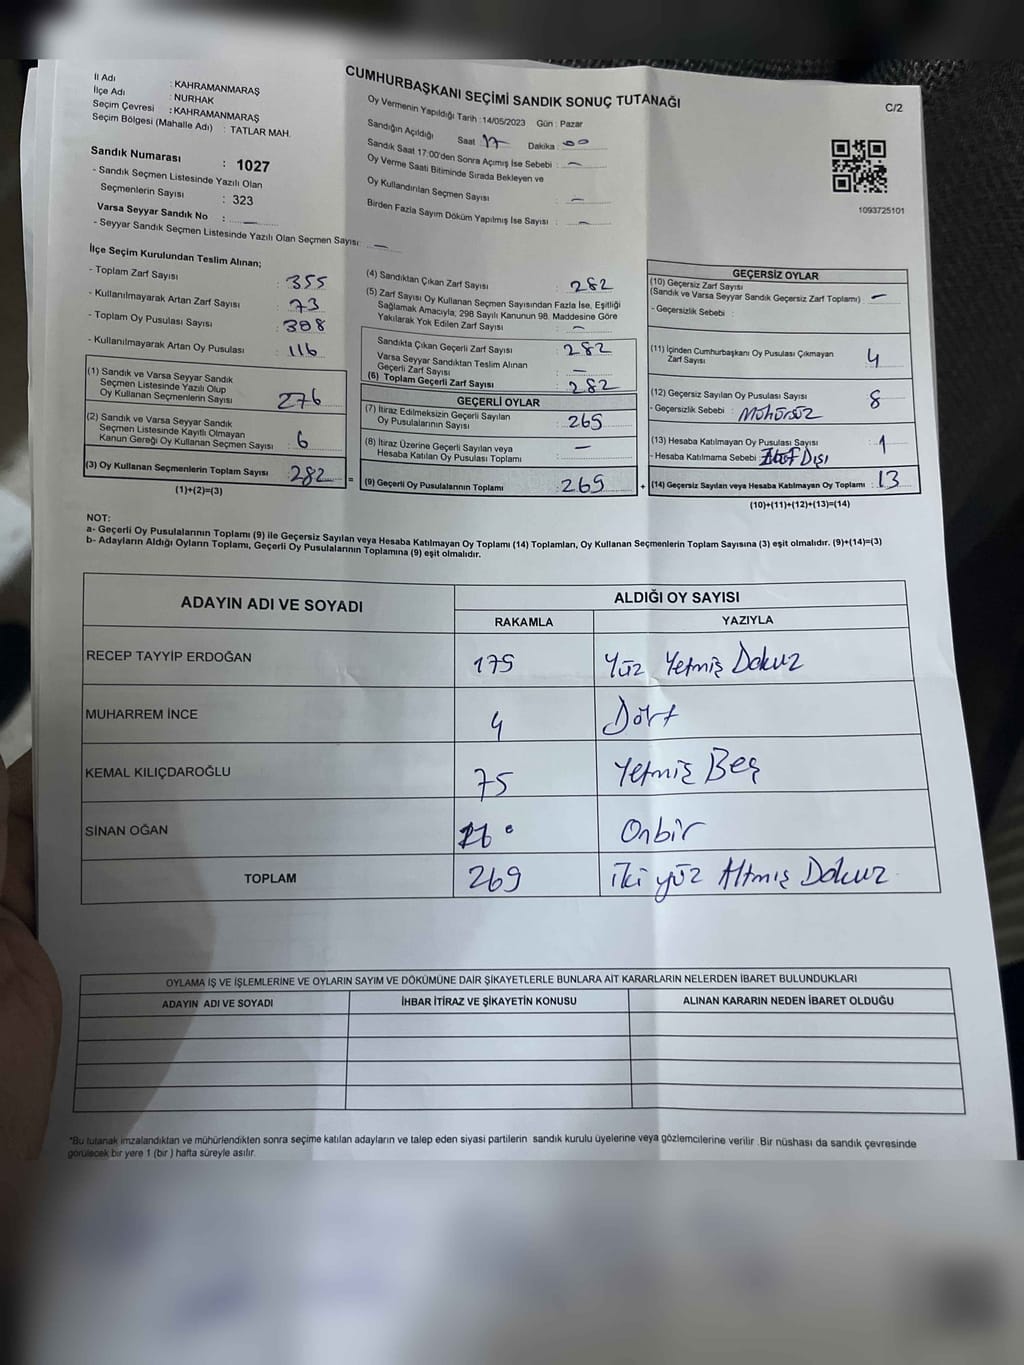 CUMHURBAŞKANI SEÇİMİ SANDIK SONUÇ TUTANAĞI
C/2
İl Adı : KAHRAMANMARAŞ
İlçe Adı : NURHAK
Seçim Çevresi : KAHRAMANMARAŞ
Seçim Bölgesi (Mahalle Adı) : TATLAR MAH.
Sandık Numarası : 1027
- Sandık Seçmen Listesinde Yazılı Olan
Seçmenlerin Sayısı : 323
Varsa Seyyar Sandık No : —
- Seyyar Sandık Seçmen Listesinde Yazılı Olan Seçmen Sayısı: —
Oy Vermenin Yapıldığı Tarih : 14/05/2023 Gün : Pazar
Sandığın Açıldığı Saat : 17 Dakika : 00
Sandık Saat 17:00'den Sonra Açımış İse Sebebi : —
Oy Verme Saati Bitiminde Sırada Bekleyen ve
Oy Kullandırılan Seçmen Sayısı : —
Birden Fazla Sayım Döküm Yapılmış İse Sayısı : —
1093725101
İlçe Seçim Kurulundan Teslim Alınan;
- Toplam Zarf Sayısı : 355
- Kullanılmayarak Artan Zarf Sayısı : 73
- Toplam Oy Pusulası Sayısı : 398
- Kullanılmayarak Artan Oy Pusulası : 116
(1) Sandık ve Varsa Seyyar Sandık
Seçmen Listesinde Yazılı Olup
Oy Kullanan Seçmenlerin Sayısı : 276
(2) Sandık ve Varsa Seyyar Sandık
Seçmen Listesinde Kayıtlı Olmayan
Kanun Gereği Oy Kullanan Seçmen Sayısı : 6
(3) Oy Kullanan Seçmenlerin Toplam Sayısı : 282 =
(1)+(2)=(3)
(4) Sandıktan Çıkan Zarf Sayısı : 282
(5) Zarf Sayısı Oy Kullanan Seçmen Sayısından Fazla İse, Eşitliği
Sağlamak Amacıyla, 298 Sayılı Kanunun 98. Maddesine Göre
Yakılarak Yok Edilen Zarf Sayısı : —
Sandıkta Çıkan Geçerli Zarf Sayısı : 282
Varsa Seyyar Sandıktan Teslim Alınan
Geçerli Zarf Sayısı : —
(6) Toplam Geçerli Zarf Sayısı : 282
GEÇERLİ OYLAR
(7) İtiraz Edilmeksizin Geçerli Sayılan
Oy Pusulalarının Sayısı : 269
(8) İtiraz Üzerine Geçerli Sayılan veya
Hesaba Katılan Oy Pusulası Toplamı : —
(9) Geçerli Oy Pusulalarının Toplamı : 269 +
GEÇERSİZ OYLAR
(10) Geçersiz Zarf Sayısı
(Sandık ve Varsa Seyyar Sandık Geçersiz Zarf Toplamı) : —
- Geçersizlik Sebebi :
(11) İçinden Cumhurbaşkanı Oy Pusulası Çıkmayan
Zarf Sayısı : 4
(12) Geçersiz Sayılan Oy Pusulası Sayısı : 8
- Geçersizlik Sebebi : Mühürsüz
(13) Hesaba Katılmayan Oy Pusulası Sayısı : 1
- Hesaba Katılmama Sebebi : Dışı
(14) Geçersiz Sayılan veya Hesaba Katılmayan Oy Toplamı : 13
(10)+(11)+(12)+(13)=(14)
NOT:
a- Geçerli Oy Pusulalarının Toplamı (9) ile Geçersiz Sayılan veya Hesaba Katılmayan Oy Toplamı (14) Toplamları, Oy Kullanan Seçmenlerin Toplam Sayısına (3) eşit olmalıdır. (9)+(14)=(3)
b- Adayların Aldığı Oyların Toplamı, Geçerli Oy Pusulalarının Toplamına (9) eşit olmalıdır.
ADAYIN ADI VE SOYADI ALDIĞI OY SAYISI
RAKAMLA YAZIYLA
RECEP TAYYİP ERDOĞAN 179 Yüz Yetmiş Dokuz
MUHARREM İNCE 4 Dört
KEMAL KILIÇDAROĞLU 75 Yetmiş Beş
SİNAN OĞAN Onbir
TOPLAM 269 İki yüz Altmış Dokuz
OYLAMA İŞ VE İŞLEMLERİNE VE OYLARIN SAYIM VE DÖKÜMÜNE DAİR ŞİKAYETLERLE BUNLARA AİT KARARLARIN NELERDEN İBARET BULUNDUKLARI
ADAYIN ADI VE SOYADI İHBAR İTİRAZ VE ŞİKAYETİN KONUSU ALINAN KARARIN NEDEN İBARET OLDUĞU
*Bu tutanak imzalandıktan ve mühürlendikten sonra seçime katılan adayların ve talep eden siyasi partilerin sandık kurulu üyelerine veya gözlemcilerine verilir .Bir nüshası da sandık çevresinde
görülecek bir yere 1 (bir ) hafta süreyle asılır.